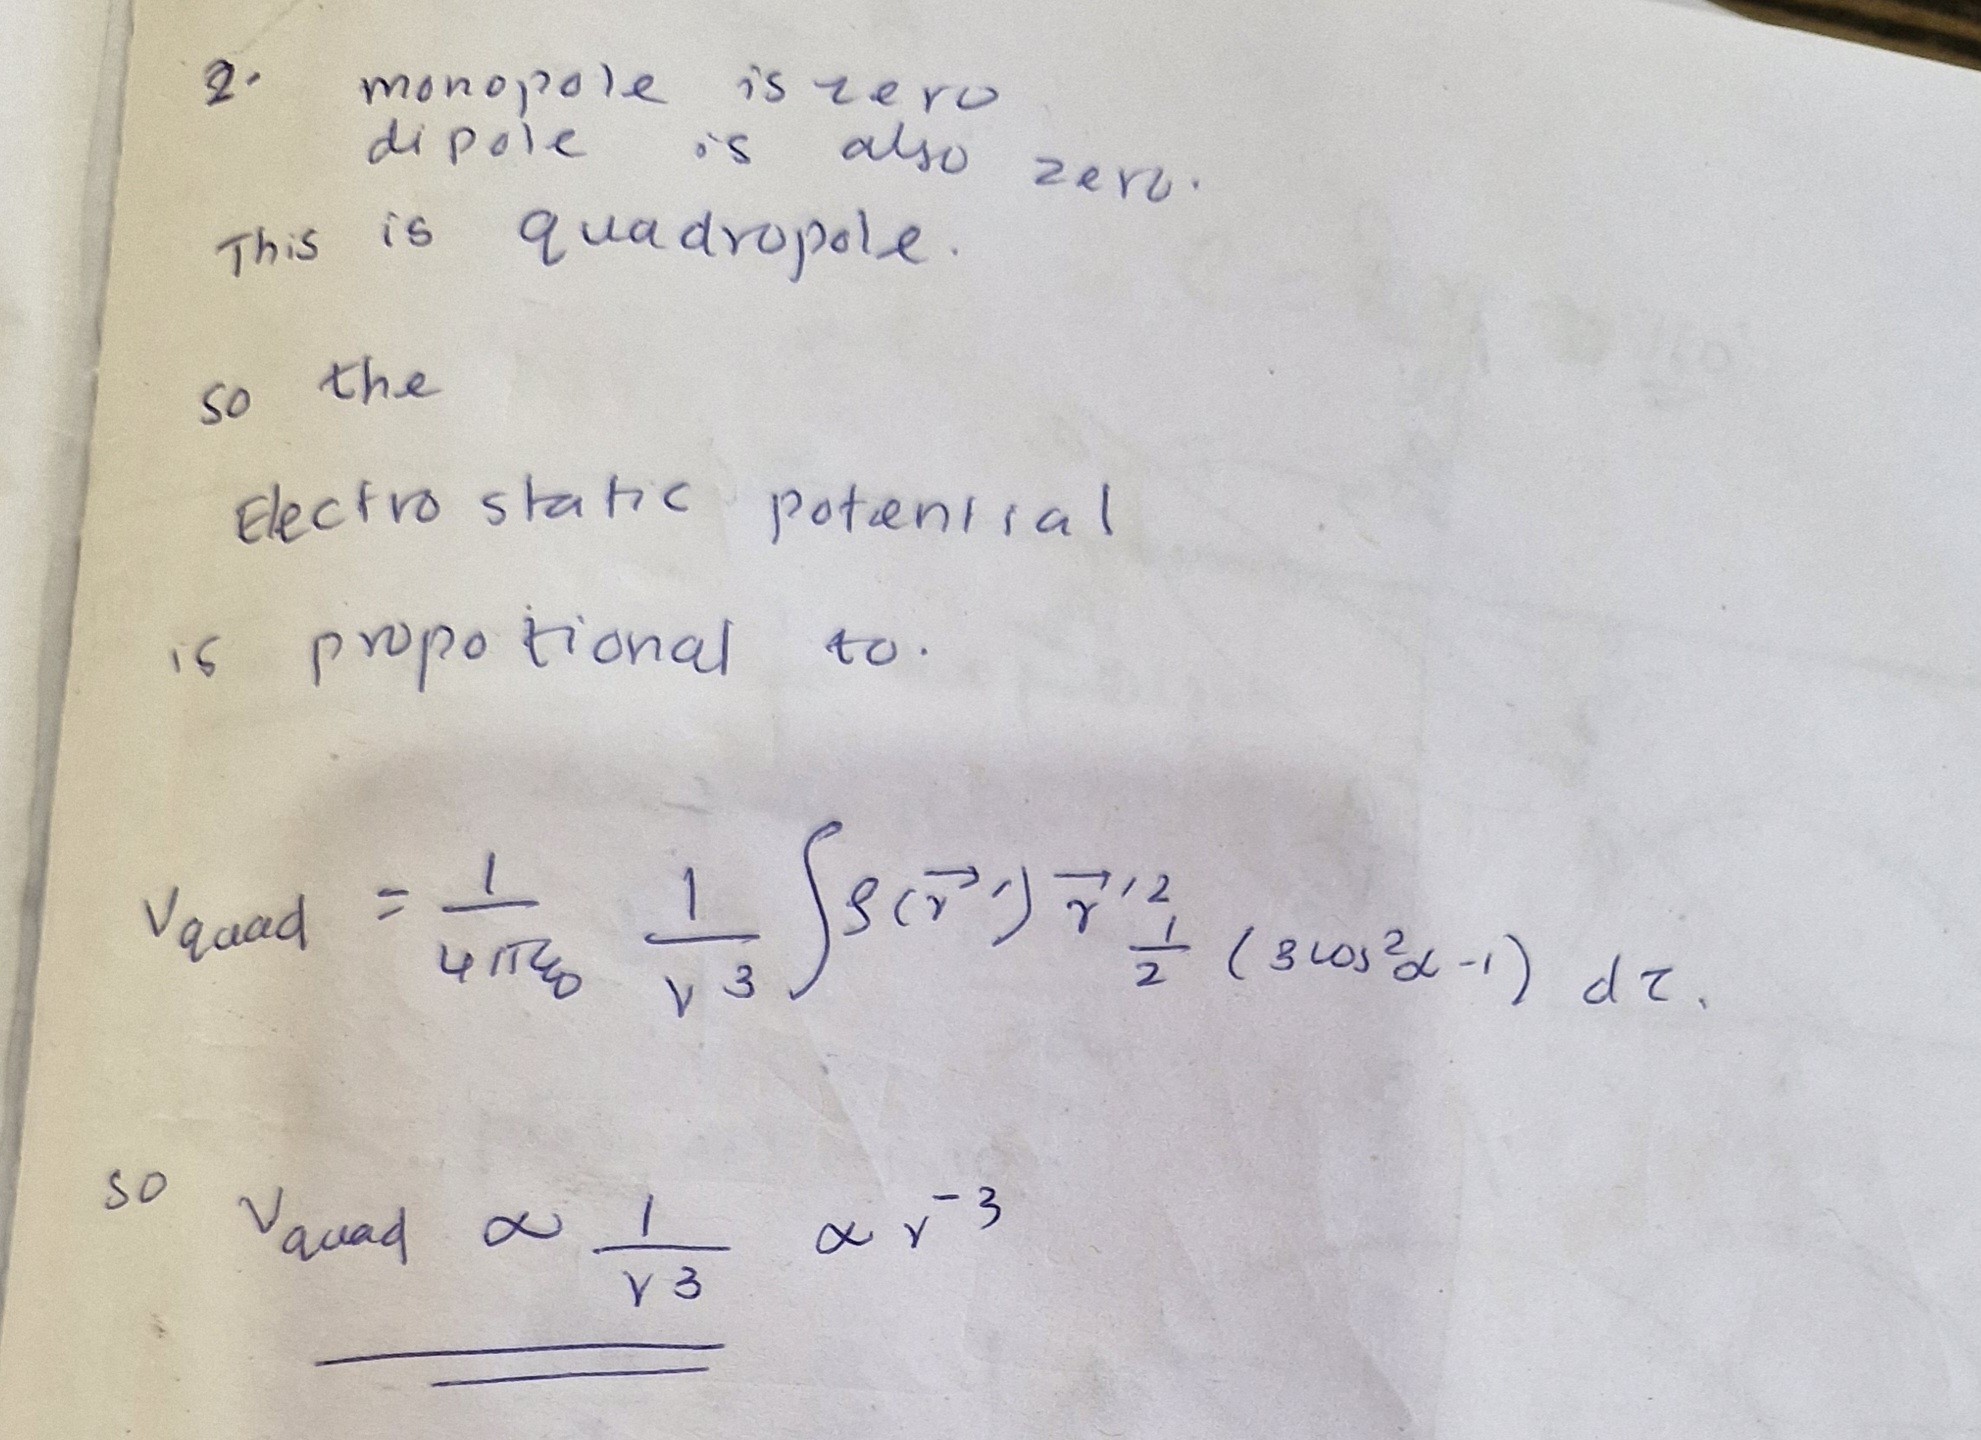 2. monopole is zero
dipole is also zero.
This is quadropole.
so the
Electro static potential
is propotional to.
Vquad = 1/4πε0 1/r^3 ∫ρ(r⃗') r⃗'^2 1/2 (3cos^2α-1) dτ.
so Vquad ∝ 1/r^3 ∝ r^-3